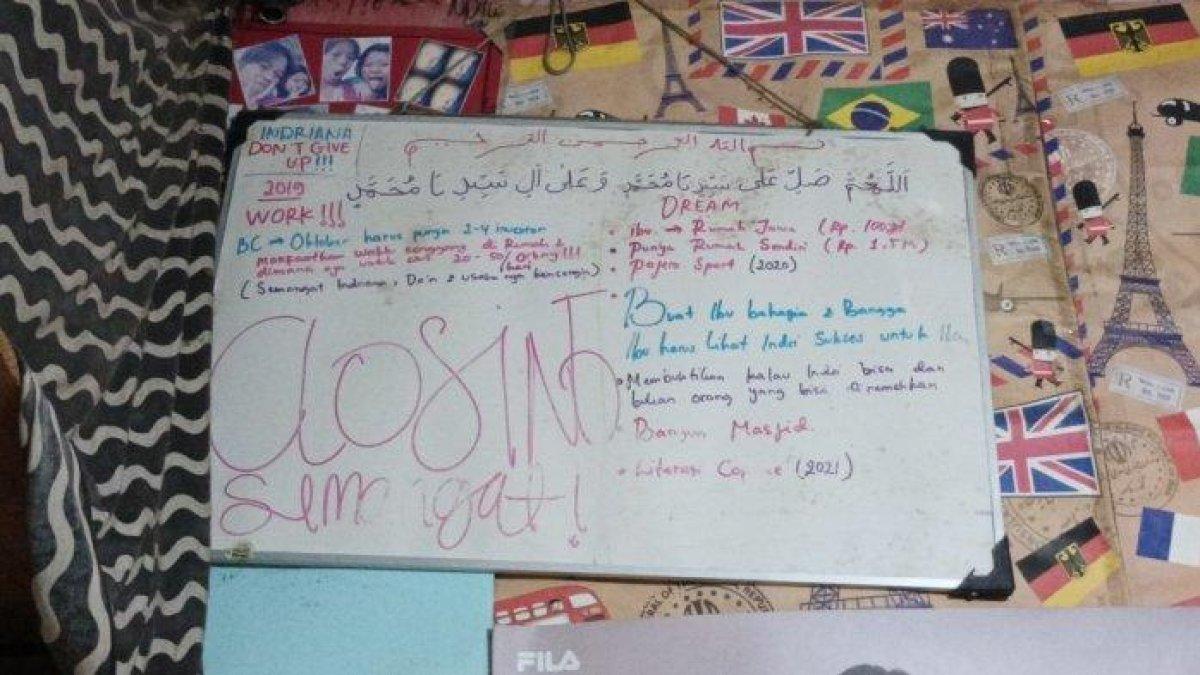 INDRIANA
DON'T GIVE
UP!!!
بسم الله الرحمن الرحيم
اَللّٰهُمَّ صَلِّ عَلَى سَيِّدِنَا مُحَمَّدٍ وَعَلَى اٰلِ سَيِّدِنَا مُحَمَّدٍ
2019
WORK!!!
BC → Oktober harus punya 2-4 investor
manfaatkan waktu senggang di Rumah &
dimana aja waktu 20-50/orang!!!
/hari
(Semangat Indriana, Do'in & usaha aja kencengin)
CLOSING
semangat!
DREAM
• Ibu → Rumah Jawa (Rp. 100jt)
• Punya Rumah Sendiri (Rp 1.5M)
• Pajero Sport (2020)
• Buat Ibu bahagia & Bangga
Ibu harus Lihat Indri Sukses untuk
• Membuktikan kalau Indri bisa dan
bukan orang yang bisa diremehkan
• Bangun Masjid.
• Literasi (2021)
FILA